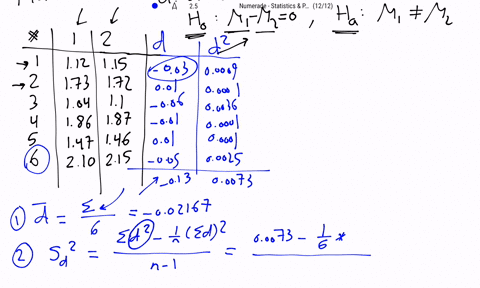 2.5 Numerade - Statistics & P... (12/12)
H₀ : M₁-M₂=0 , Hₐ : M₁ ≠ M₂
* 1 2 d d²
1 1.12 1.15 -0.03 0.0009
2 1.73 1.72 0.01 0.0001
3 1.04 1.1 -0.06 0.0036
4 1.86 1.87 -0.01 0.0001
5 1.47 1.46 0.01 0.0001
6 2.10 2.15 -0.05 0.0025
-0.13 0.0073
① d̄ = Σ/6 = -0.02167
② S_d² = (Σd² - 1/n (Σd)²)/(n-1) = 0.0073 - 1/6 *